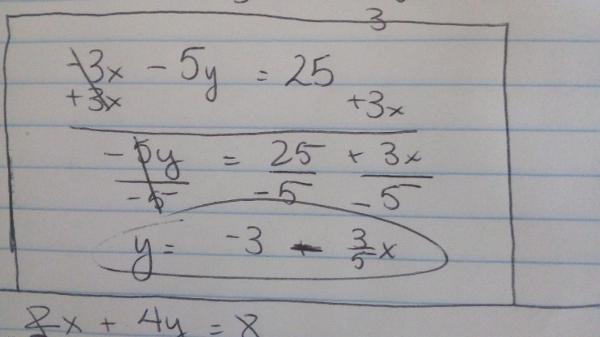 3
-3x - 5y = 25
+3x +3x
-5y = 25 + 3x
-5 -5 -5
y = -3 - 3/5x
8x + 4y = 8